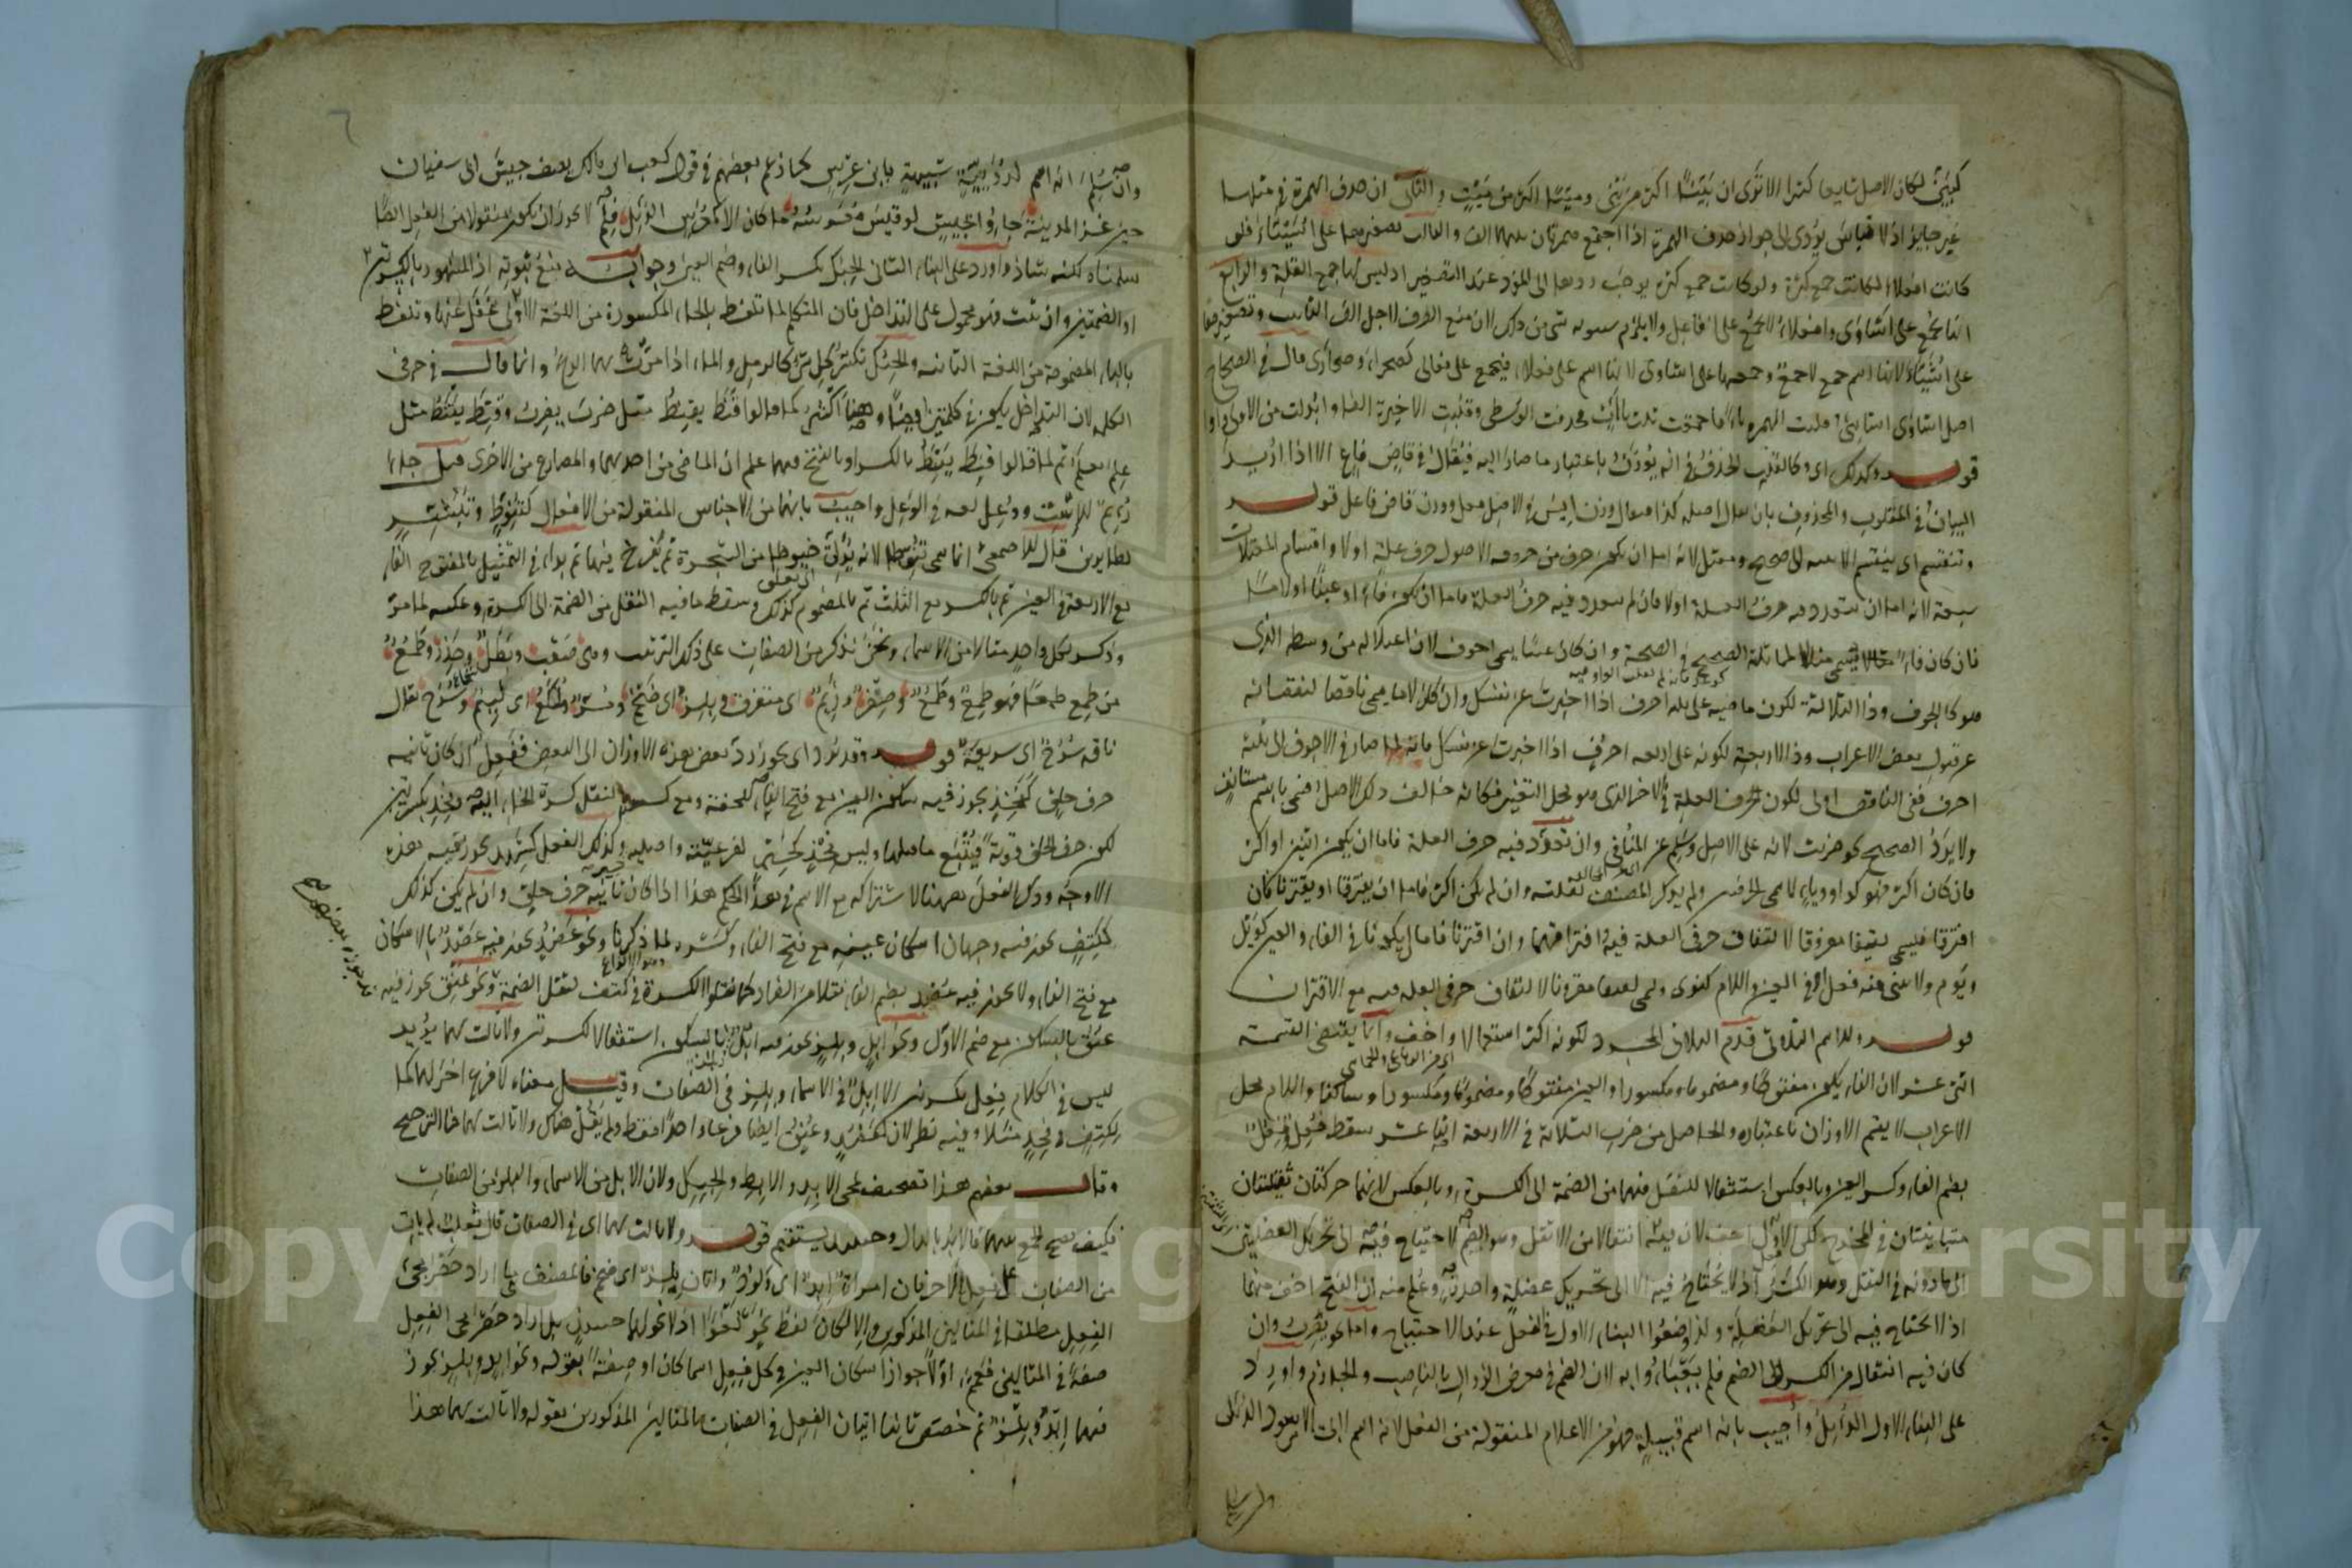 كبيّن لكان الاصل شايعا كثيرا الا ترى ان بيّنا اكثر من بين وميّتا اكثر من ميت والثانى ان حذف الهمزة فى مثلها
غير جايز اذ لا قياس يؤدى الى جواز حذف الهمزة اذا اجتمع همزتان بينهما الف والثالث تصغيرها على اشيّاء فلو
كانت افعلاء لكانت جمع كثرة ولو كانت جمع كثرة يوجب ردها الى المفرد عند التصغير اذ ليس لها جمع القلة والرابع
انها تجمع على اشاوى وافعلاء لا تجمع على افاعل ولا يلزم سيبويه شى من ذلك لان منع الصرف لاجل الف التانيث وتصغيرها
على اشيّاء لانها اسم جمع لا جمع وجمعها على اشاوى لانها اسم على فعلاء فيجمع على فعالى كصحراء وصحارى قال فى الصحاح
اصل اشاوى اشائى قلبت الهمزة ياء فاجتمعت ثلث ياات فحذفت الوسطى وقلبت الاخيرة الفا وابدلت من الاولى واوا
قوله وكذلك اى وكالقلب الحذف فى انه يوزن باعتبار ما صار اليه فيقال فى قاض فاع الا اذا اريد
البيان فى المقلوب والمحذوف بان يقال اصله كذا فيقال وزن ايس فى الاصل فعل ووزن قاض فاعل قوله
وتنقسم اى ينقسم الابنية الى صحيح ومعتل لانه اما ان يكون حرف من حروفه الاصول حرف علة اولا واقسام المعتلات
سبعة لانه اما ان يتعدد فيه حرف العلة اولا فان لم يتعدد فيه حرف العلة فاما ان يكون فاء او عينا او لاما
فان كان فاء يسمى مثالا لمماثلته الصحيح فى الصحة وان كان عينا يسمى اجوف لان اعتلاله من وسطه الذى
هو كالجوف وذا الثلاثة لكون ماضيه على ثلثة احرف اذا اخبرت عن نفسك وان كان لاما يسمى ناقصا لنقصانه
عن قبول بعض الاعراب وذا الاربعة لكونه على اربعة احرف اذا اخبرت عن نفسك فانه لما صار فى الاجوف الى ثلثة
احرف ففى الناقص اولى لكون حرف العلة فى الاخر الذى هو محل التغيير فكانه خالف ذلك الاصل فسمى باسم مستانف
ولا يرد الصحيح نحو ضربت لانه على الاصل وسلم عن المنافى وان تعدد فيه حرف العلة فاما ان يكون اثنين او اكثر
فان كان اكثر فهو كواو وياء لاسمى الحرفين ولم يذكر المصنف لقلته وان لم يكن اكثر فاما ان يفترقا او يقترنا فان
افترقا فيسمى لفيفا مفروقا لالتفاف حرفى العلة فيه وافتراقهما وان اقترنا فاما ان يكونا فى الفاء والعين كويل
ويوم ولا يبنى منه فعل او فى العين واللام كنوى ويسمى لفيفا مقرونا لالتفاف حرفى العلة فيه مع الاقتران
قوله وللاسم الثلاثى قدم الثلاثى المجرد لكونه اكثر استعمالا واخف وانما يقتضى القسمة
اثنى عشر لان الفاء يكون مفتوحا ومضموما ومكسورا والعين مفتوحا ومضموما ومكسورا وساكنا واللام محل
الاعراب لا يعتبر الاوزان باعتباره والحاصل من ضرب الثلاثة فى الاربعة اثنا عشر سقط فُعِل وفِعُل
بضم الفاء وكسر العين وبالعكس استثقالا للنقل فيهما من الضمة الى الكسرة وبالعكس لانهما حركتان ثقيلتان
متباينتان فى المخرج لكن الاول اخف لان فيه انتقالا من الاثقل وهو الضم لاحتياج فيه الى تحريك العضلتين
الى ما دونه فى الثقل وهو الكسر اذ لا يحتاج فيه الا الى تحريك عضلة واحدة وعلم منه ان الفتح اخف منهما
اذ لا يحتاج فيه الى تحريك العضلة ولذا وضعوا البناء الاول فى الفعل عند الاحتياج واما نحو يضرب وان
كان فيه انتقال من الكسر الى الضم فلم يعبئوا به لان الضم فى معرض الزوال بالناصب والجازم واورد
على البناء الاول الدئل واجيب بانه اسم قبيلة فهو من الاعلام المنقولة من الفعل لانه اسم ابى الاسود الدئلى
وان سلم
وان سلم انه اسم لدويبة شبيهة بابن عرس كما زعم بعضهم فى قول كعب ابن مالك يصف جيش ابى سفيان
حين غزا المدينة جاؤا بجيش لو قيس معرسه ما كان الا كمعرس الدئل فلم لا يجوز ان يكون منقولا من الفعل ايضا
سلمناه لكنه شاذ واورد على البناء الثانى الحِبُك بكسر الفاء وضم العين وجوابه منع ثبوته اذ المشهور بالكسرتين
او الضمتين وان ثبت فهو محمول على التداخل فان المتكلم لما تلفظ بالحاء المكسورة من اللغة الاولى غفل عنها وتلفظ
بالباء المضمومة من اللغة الثانية والحبك تكسر كل شى كالرمل والماء اذا مرت بهما الريح وانما قال فى حرفى
الكلمة لان التداخل يكون فى كلمتين ايضا وهذا اكثر كما قالوا قنط يقنط مثل ضرب يضرب وقنط يقنط مثل
علم يعلم ثم لما قالوا قنط يقنط بالكسر او بالفتح فيهما علم ان الماضى من احديهما والمضارع من الاخرى قيل جاء
رُئِم للاست ووعل لغة فى الوعل واجيب بانهما من الاجناس المنقولة من الافعال كتنوط وتبشر
لطايرين قال الاصمعى انما سمى تنوطا لانه يدلى خيوطا من الشجرة ثم يفرخ فيها ثم بدا فى التمثيل بالمفتوح الفاء
مع الاربعة فى العين ثم بالكسر مع الثلث ثم بالمضموم كذلك وسقط ما فيه النقل من الضمة الى الكسرة وعكسه لما مر
وذكر لكل واحد مثالا من الاسماء ونحن نذكر من الصفات على ذلك الترتيب وهى صعب وبطل وحذر وطمع
من طمع طمعا فهو طمِع وطمُع وصفر وزيم اى متفرق وبلز اى ضخم ومر ولكع اى لئيم وسرح يقال
ناقة سرح اى سريعة قوله وقد يرد اى يجوز رد بعض هذه الاوزان الى البعض ففعِل ان كان ثانيه
حرف حلق كفخذ يجوز فيه سكون العين مع فتح الفاء للخفة ومع كسرها لنقل كسرة الخاء اليه وفخذ بكسرتين
لكون حرف الحلق قوية فيتبع ما قبلها وليس فخذ كحبك لفرعيته واصليته وكذلك الفعل كشهد يجوز فيه هذه
الاوجه وذكر الفعل ههنا لاشتراكه مع الاسم فى هذا الحكم هذا اذا كان ثانيه حرف حلق وان لم يكن كذلك
ككتف يجوز فيه وجهان اسكان عينه مع فتح الفاء وكسره لما ذكرنا ونحو عضد يجوز فيه عضد بالاسكان
مع فتح الفاء ولا يجوز فيه عضد بضم الفاء نقلا من الضاد كما نقلوا الكسرة فى كتف لثقل الضمة ونحو عنق يجوز فيه
عنق بالسكون مع ضم الاول ونحو ابل وبلز يجوز فيه ابل وبلز بالسكون استثقالا لكسرتين ولا ثالث لهما يريد
ليس فى الكلام فعل بكسرتين الا ابل فى الاسماء وبلز فى الصفات وقيل معناه لا فرع اخر لهما كما
لكتف وفخذ مثلا وفيه نظر لان لعضد وعنق ايضا فرعا واحدا فقط ولم يقل هناك ولا ثالث لهما
وقال بعضهم هذا تصحيف لمجى الابد والابط والحبك ولان الابل من الاسماء والبلز من الصفات
فكيف يصح الجمع بينهما فالابد بالدال وحينئذ يستقيم قوله ولا ثالث لهما اى فى الصفات قال ثعلب لم يات
من الصفات على فعل الا حرفان امراة ابد اى ولود واتان بلز اى ضخم فالمصنف ما اراد حصر مجى
الفعل مطلقا فى المثالين المذكورين والا لكان لفظ نحو لغوا اذ لا نحو لهما حينئذ بل اراد حصر مجى الفعل
صفة فى المثالين فعمم اولا جواز اسكان العين فى كل فعل اسما كان او صفة بقوله ونحو ابد وبلز يجوز
فيهما ابد وبلز ثم خصص ثانيا اتيان الفعل فى الصفات بالمثالين المذكورين بقوله ولا ثالث لهما هذا
Copyright © King Saud University